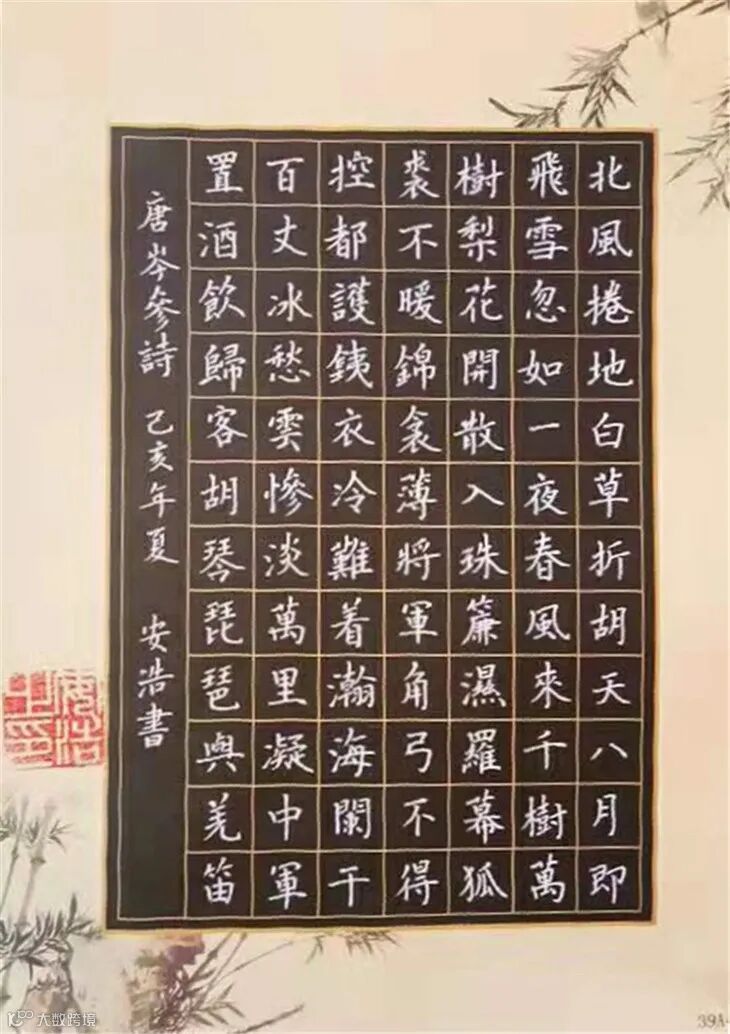 北風捲地白草折胡天八月即
飛雪忽如一夜春風來千樹萬
樹梨花開散入珠簾濕羅幕狐
裘不暖錦衾薄將軍角弓不得
控都護銕衣冷難着瀚海闌干
百丈冰愁雲慘淡萬里凝中軍
置酒飲歸客胡琴琵琶與羌笛
唐岑參詩 己亥年夏 安浩書
安浩之印
大数跨境